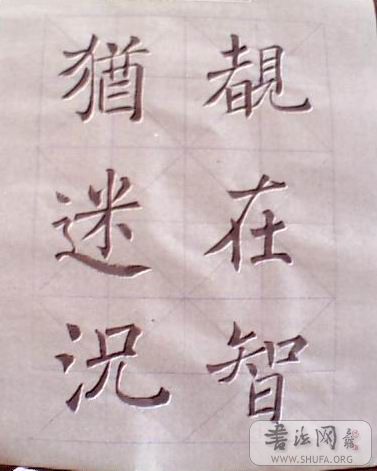 覩在智
猶迷况
書法网
WWW.SHUFA.ORG